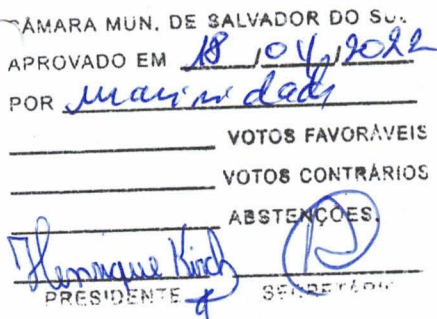 CÂMARA MUN. DE SALVADOR DO SUL
APROVADO EM 18/04/2022
POR unanimidade
VOTOS FAVORÁVEIS
VOTOS CONTRÁRIOS
ABSTENÇÕES.
Henrique Kirch
PRESIDENTE SECRETÁRIO